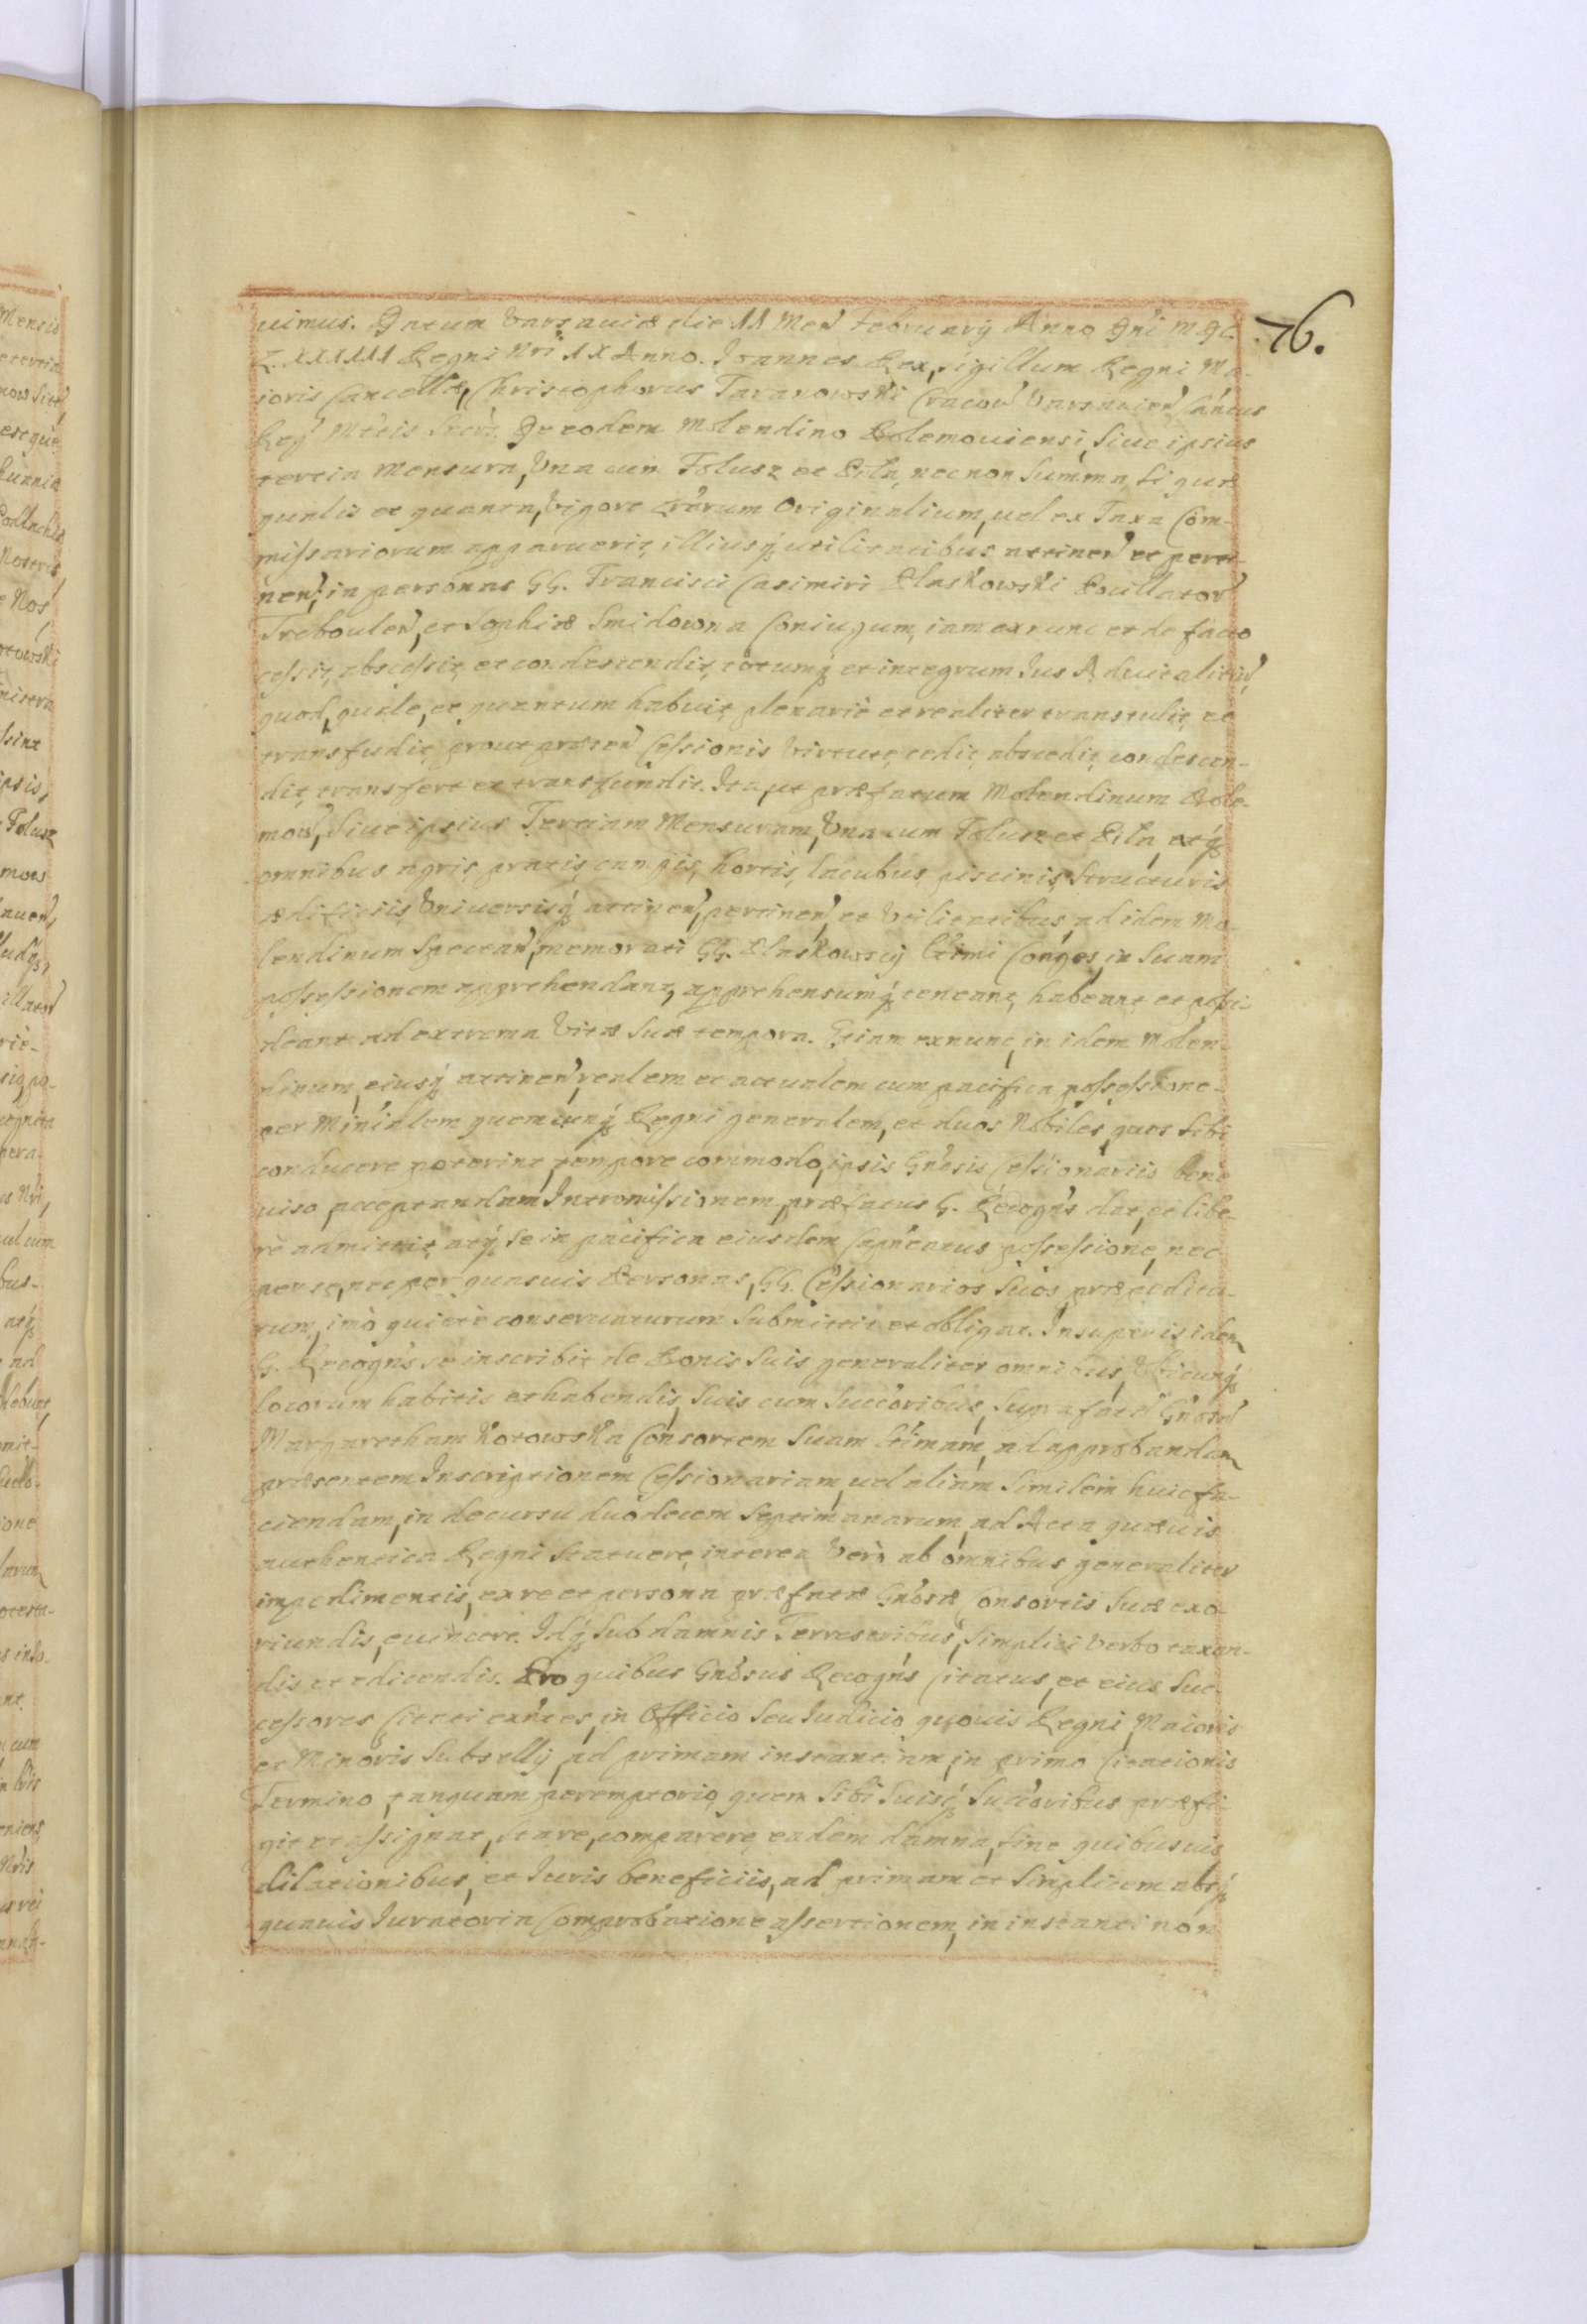 76.
uimus. Datum Varsauiæ die 11 Men̄ February Anno Dn̄i MDC
LXXXIII Regni Nr̄i IX Anno. Ioannes Rex, Sigillum Regni Ma-
ioris Cancellæ, Christophorus Tararowski Cracou̅ Varsauien̄ Can̄cus
Reg̅ Mtis Secr̄s. De eodem Molendino Bolemouiensi, Siue ipsius
tertia Mensura, Vna cum Folusz et Pila, necnon Summa, si quæ
qualis et quanta, vigore Lr̄arum Originalium, uel ex Taxa Com-
missariorum apparuerit, illiusq́ utilitatibus attinen̄ et perti-
nen̄, in personas GG. Francisci Casimiri Plaskowski Pocillator̄
Treboulen̄, et Sophiæ Smidowna Coniugum, iam exnunc et de facto
cessit, abscessit, et condescendit, totumq́ et integrum Ius Aduitalitiū,
quod, quale, et quantum habuit, plenariè et realiter transtulit, ac
transfudit, prout præsen̄ Cessionis virtute, cedit, abscedit, condescen-
dit, transfert et transfundit. Ita, ut præfatum Molendinum Bole-
mou̅, Siue ipsius Tertiam Mensuram, Vna cum Folusz et Pila, atq́
omnibus agris, pratis, campis, hortis, lacubus, piscinis, Structuris
ædificiis, Vniuersisq́ attinen̄, pertinen̄, et Vtilitatibus, ad idem Mo-
lendinum Spectan̄, memorati GG. Plaskowscy ltimi Conges, in Suam
possessionem apprehendant, apprehensumq́ teneant, habeant et possi-
deant ad extrema Vitæ Suæ tempora. Etiam exnunc, in idem Molen-
dinum, eiusq́ attinen̄, realem et actualem cum pacifica possessione
per Mini̅alem quemcunq́ Regni generalem, et duos Nobiles, quos sibi
conducere poterint, tempore commodo, ipsis Gn̄osis Cessionariis bene
uiso acceptandam Intromissionem, præfatus G. Recogn̄s dat, et libe-
rè admittit, atq́ Se in pacifica eiusdem possessione, nec
per se, nec per quasuis Personas, GG. Cessionarios Suos, præpeditu-
rum, imò quietè conseruaturum Submittit et obligat. Insuper is idem
G. Recogn̄s, se inscribit de Bonis Suis generaliter omnibus, Vbicunq́
locorum habitis et habendis, Suis cum Succ̄oribus, Suprafatā Gn̄osā
Margaretham Kotowska Consortem Suam ltimam, ad approbandam
præsentem Inscriptionem Cessionariam, uel aliam Similem huic fa-
ciendam, in decursu duodecem Septimanarum, ad Acta quæuis
authentica Regni Statuere, interea Verò ab omnibus generaliter
impedimentis, ex re et persona præfatæ Gn̄osæ Consortis Suæ exo-
riundis, euincere. Idq́ Sub damnis Terrestribus, Simplici Verbo taxan-
dis et edicendis. Pro quibus Gn̄osus Recogn̄s Citatus, et eius Suc-
cessores Citati exn̄tes, in Officio Seu Iudicio quouis Regni, Maioris
et Minoris Subselly, ad primam instantiam, in primo Citationis
Termino, tanquam peremptorio, quem Sibi Suisq́ Succ̄oribus præfi-
git et assignat, Stare, comparere, eadem damna, Sine quibusuis
dilationibus, et Iuris beneficiis, ad primam et Simplicem absq́
quauis Iuratoria Comprobatione assertionem, in instanti non